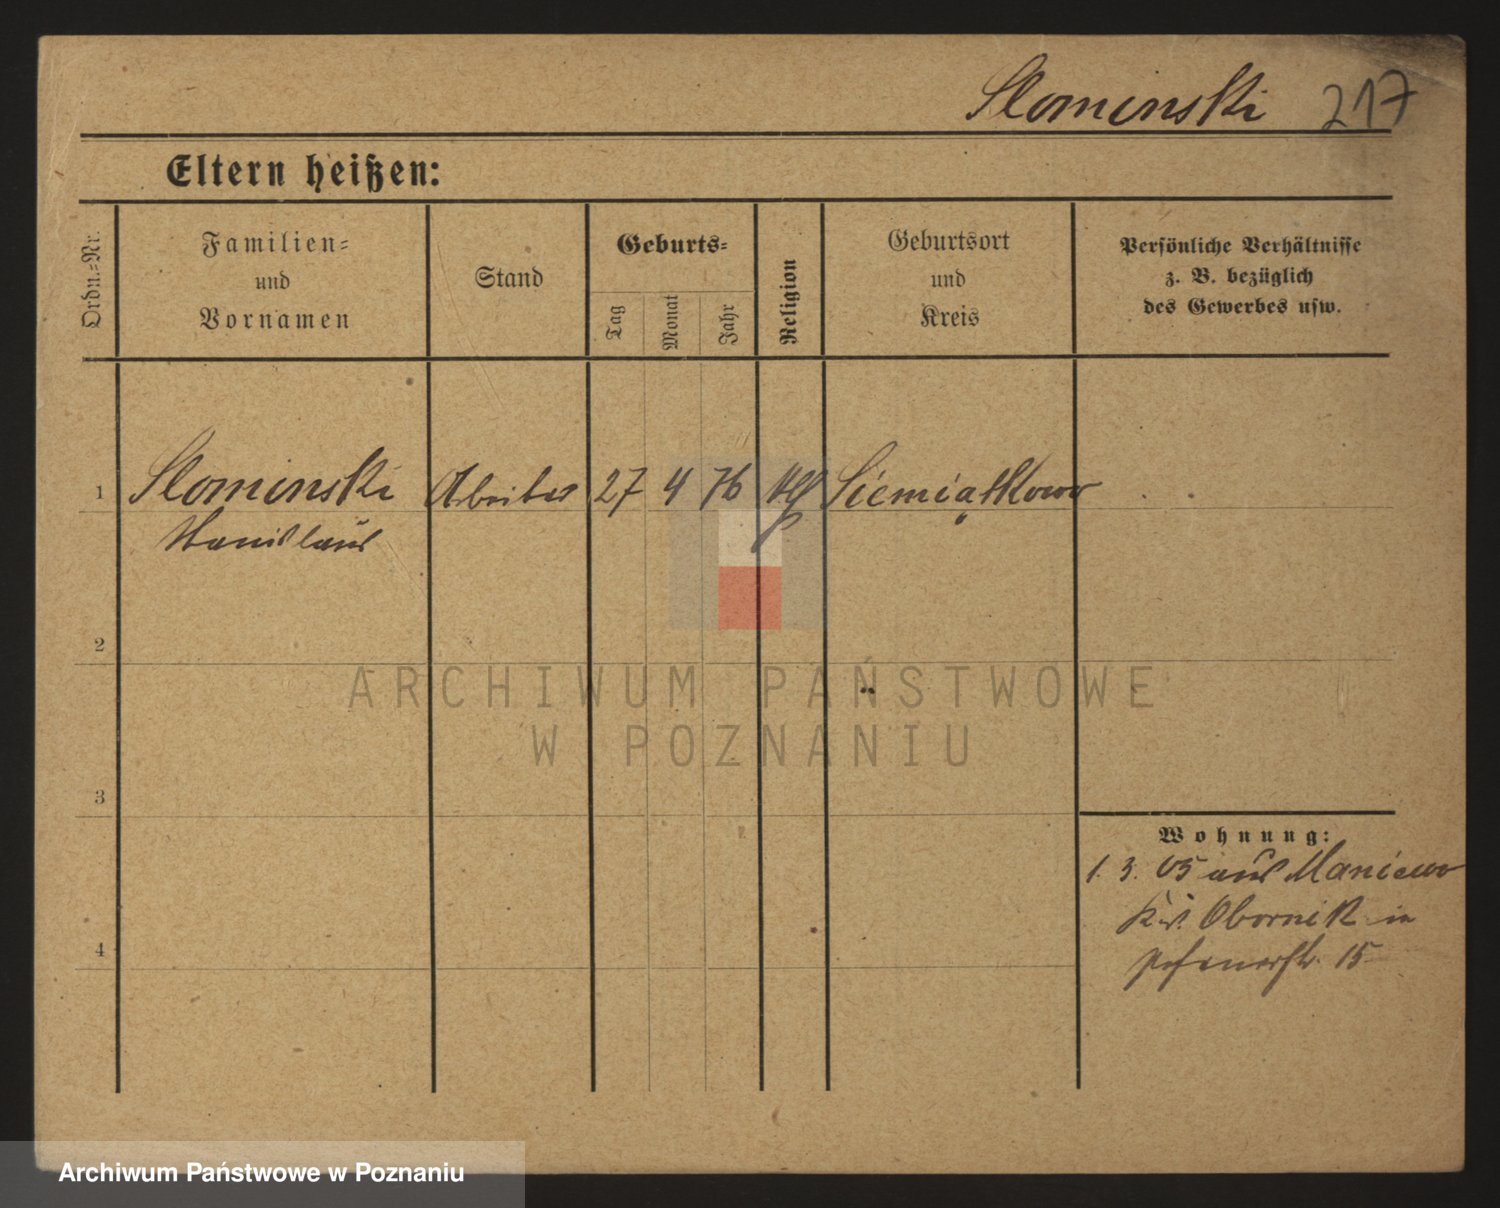 Slominski 217
Eltern heißen:
Ordn.=Nr.
Familien=
und
Vornamen
Stand
Geburts=
Tag
Monat
Jahr
Religion
Geburtsort
und
Kreis
Persönliche Verhältnisse
z. B. bezüglich
des Gewerbes usw.
1 Slominski Arbeiter 27 4 76 Siemiątkowo
Stanislaus
2
3
4
Wohnung:
1. 3. 05 aus Maniewo
Krs. Obornik in
Posenerstr. 15
ARCHIWUM PAŃSTWOWE
W POZNANIU
Archiwum Państwowe w Poznaniu